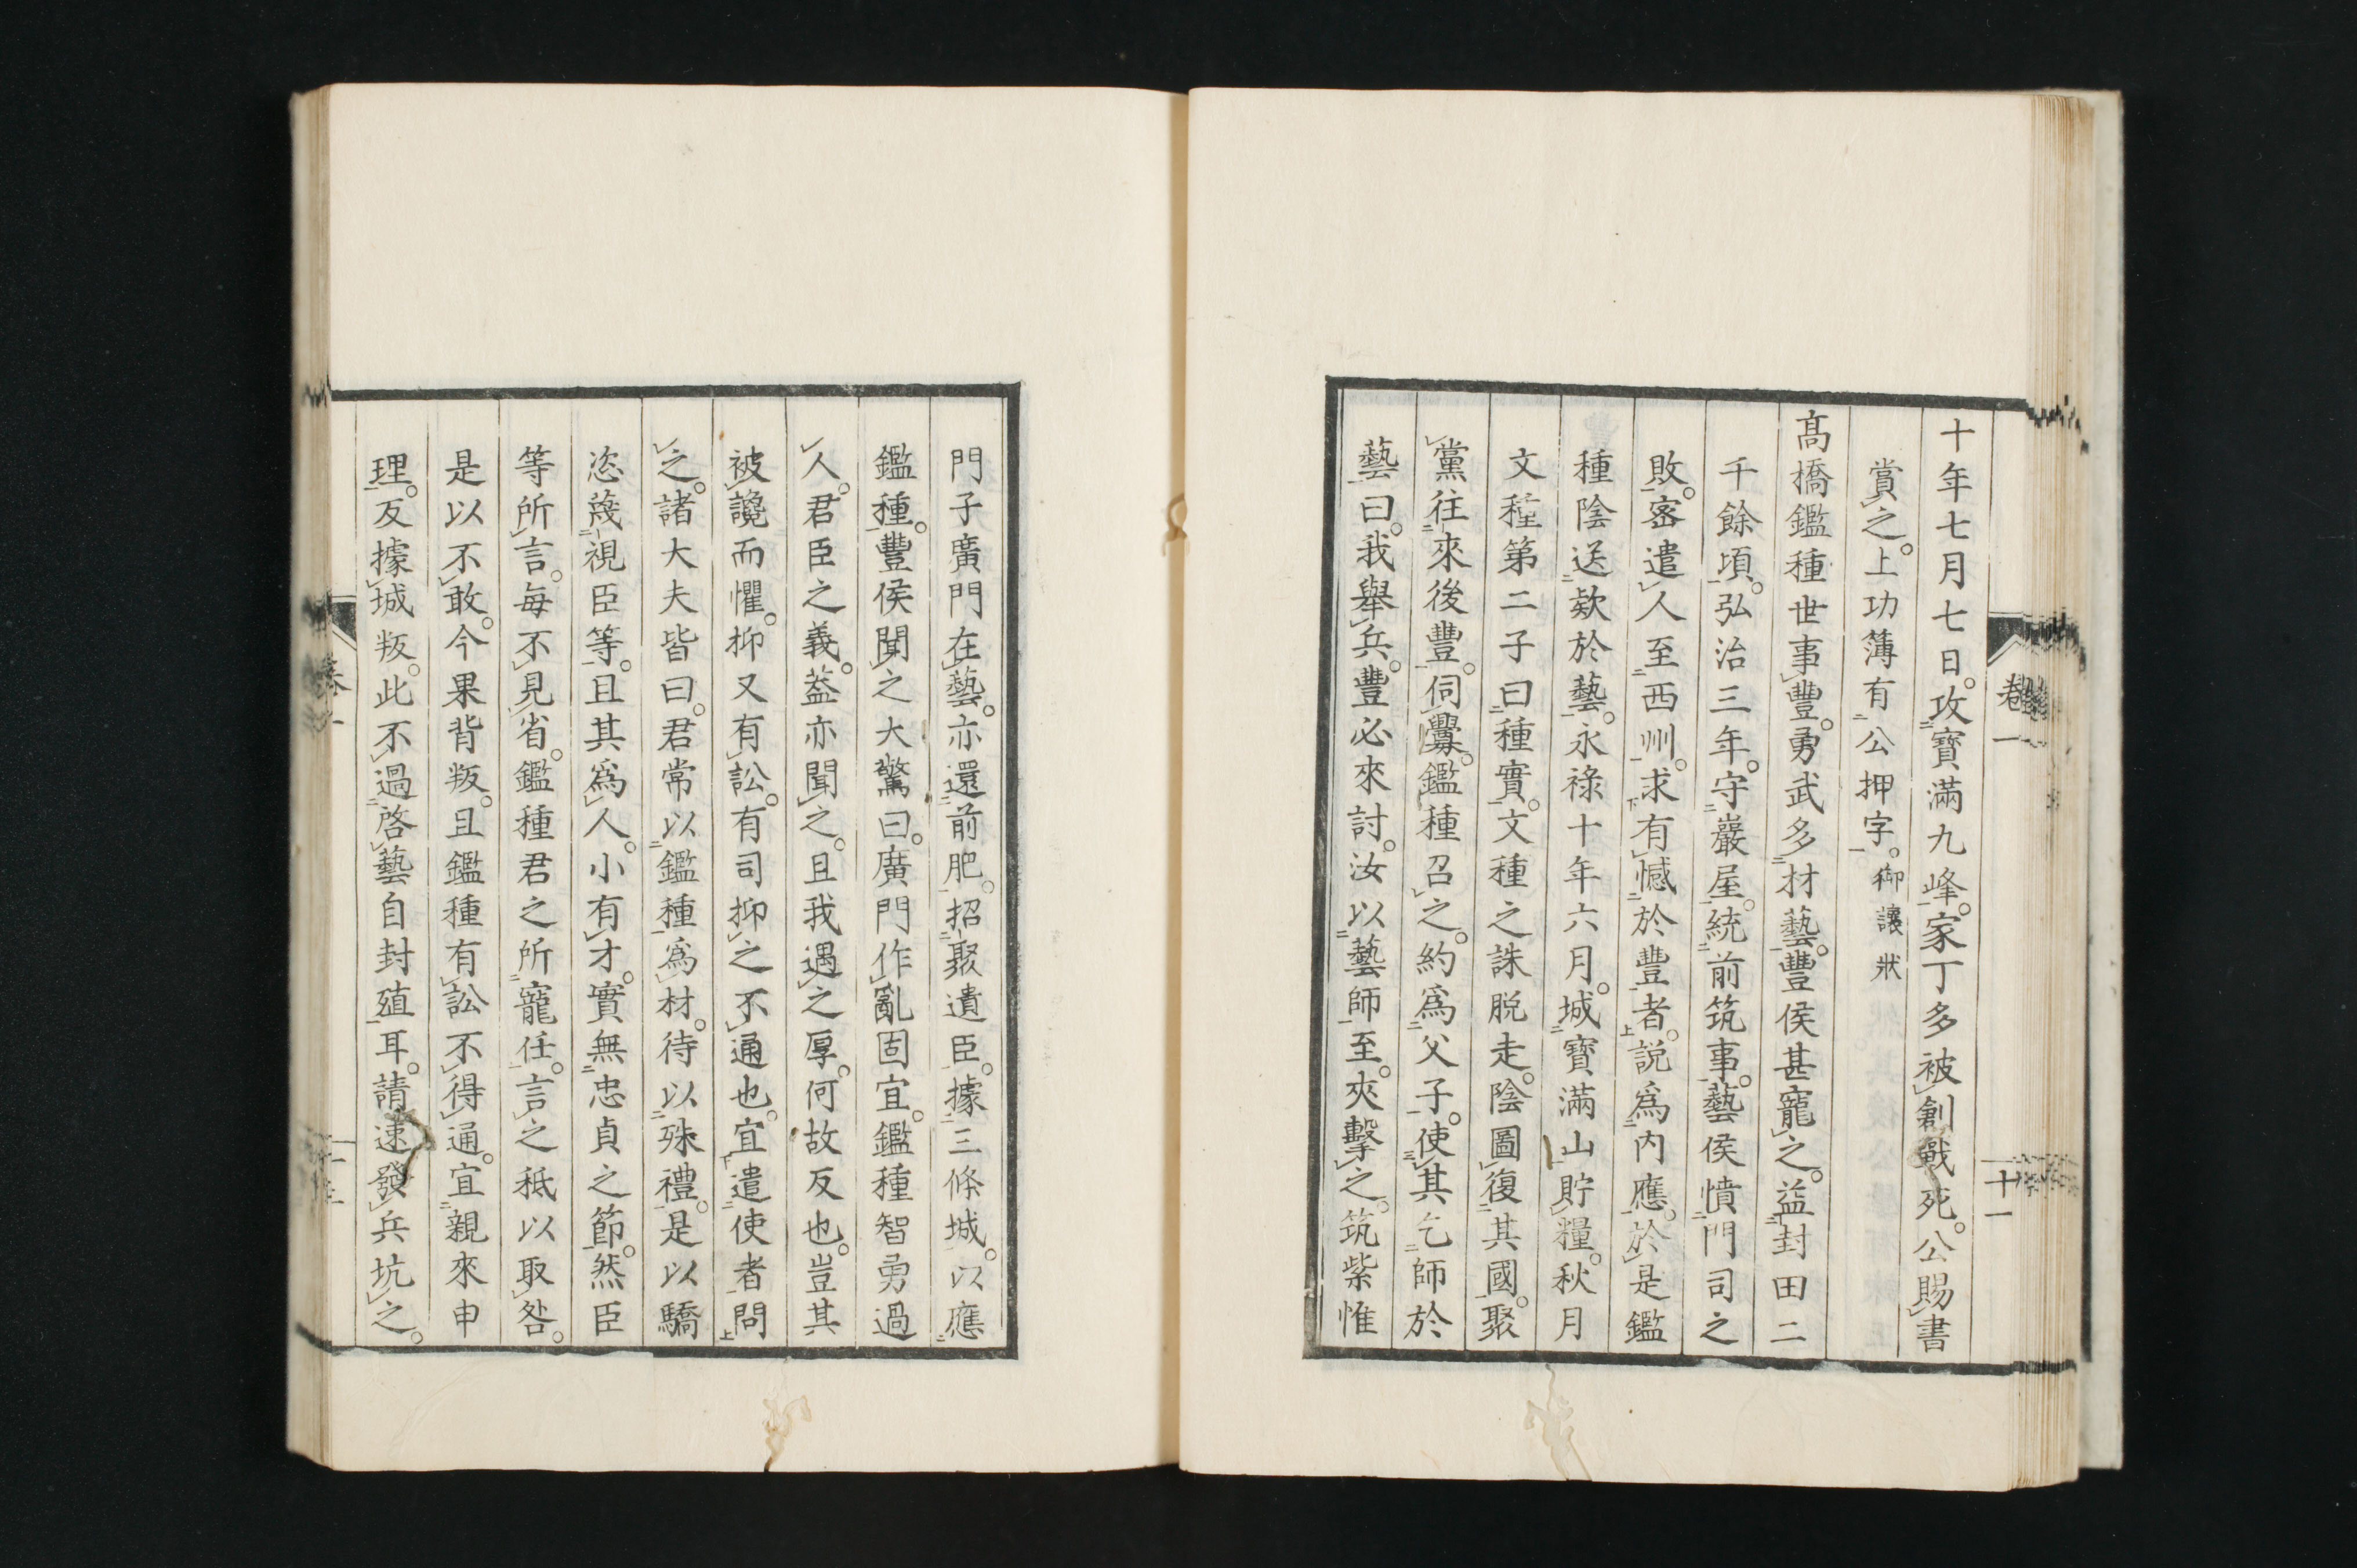 卷一
十一
十年七月七日。攻寶滿九峰。家丁多被創戰死。公賜書
賞之。上功簿有公押字。御讓狀
高橋鑑種世事豐。勇武多材藝。豐侯甚寵之。益封田二
千餘頃。弘治三年。守巖屋。統前筑事。藝侯憤門司之
敗。密遣人至西州。求有憾於豐者。説爲内應。於是鑑
種陰送欵於藝。永祿十年六月。城寶滿山貯糧。秋月
文種第二子曰種實。文種之誅脱走。陰圖復其國。聚
黨往來後豐。伺釁。鑑種召之。約爲父子。使其乞師於
藝曰。我舉兵。豐必來討。汝以藝師至。夾擊之。筑紫惟
門子廣門在藝。亦還前肥。招聚遺臣。據三條城。以應
鑑種。豐侯聞之大驚曰。廣門作亂固宜。鑑種智勇過
人。君臣之義。葢亦聞之。且我遇之厚。何故反也。豈其
被讒而懼。抑又有訟。有司抑之不通也。宜遣使者問
之。諸大夫皆曰。君常以鑑種爲材。待以殊禮。是以驕
恣蔑視臣等。且其爲人。小有才。實無忠貞之節。然臣
等所言。每不見省。鑑種君之所寵任。言之秪以取咎。
是以不敢。今果背叛。且鑑種有訟不得通。宜親來申
理。反據城叛。此不過啓藝自封殖耳。請速發兵坑之。
卷一